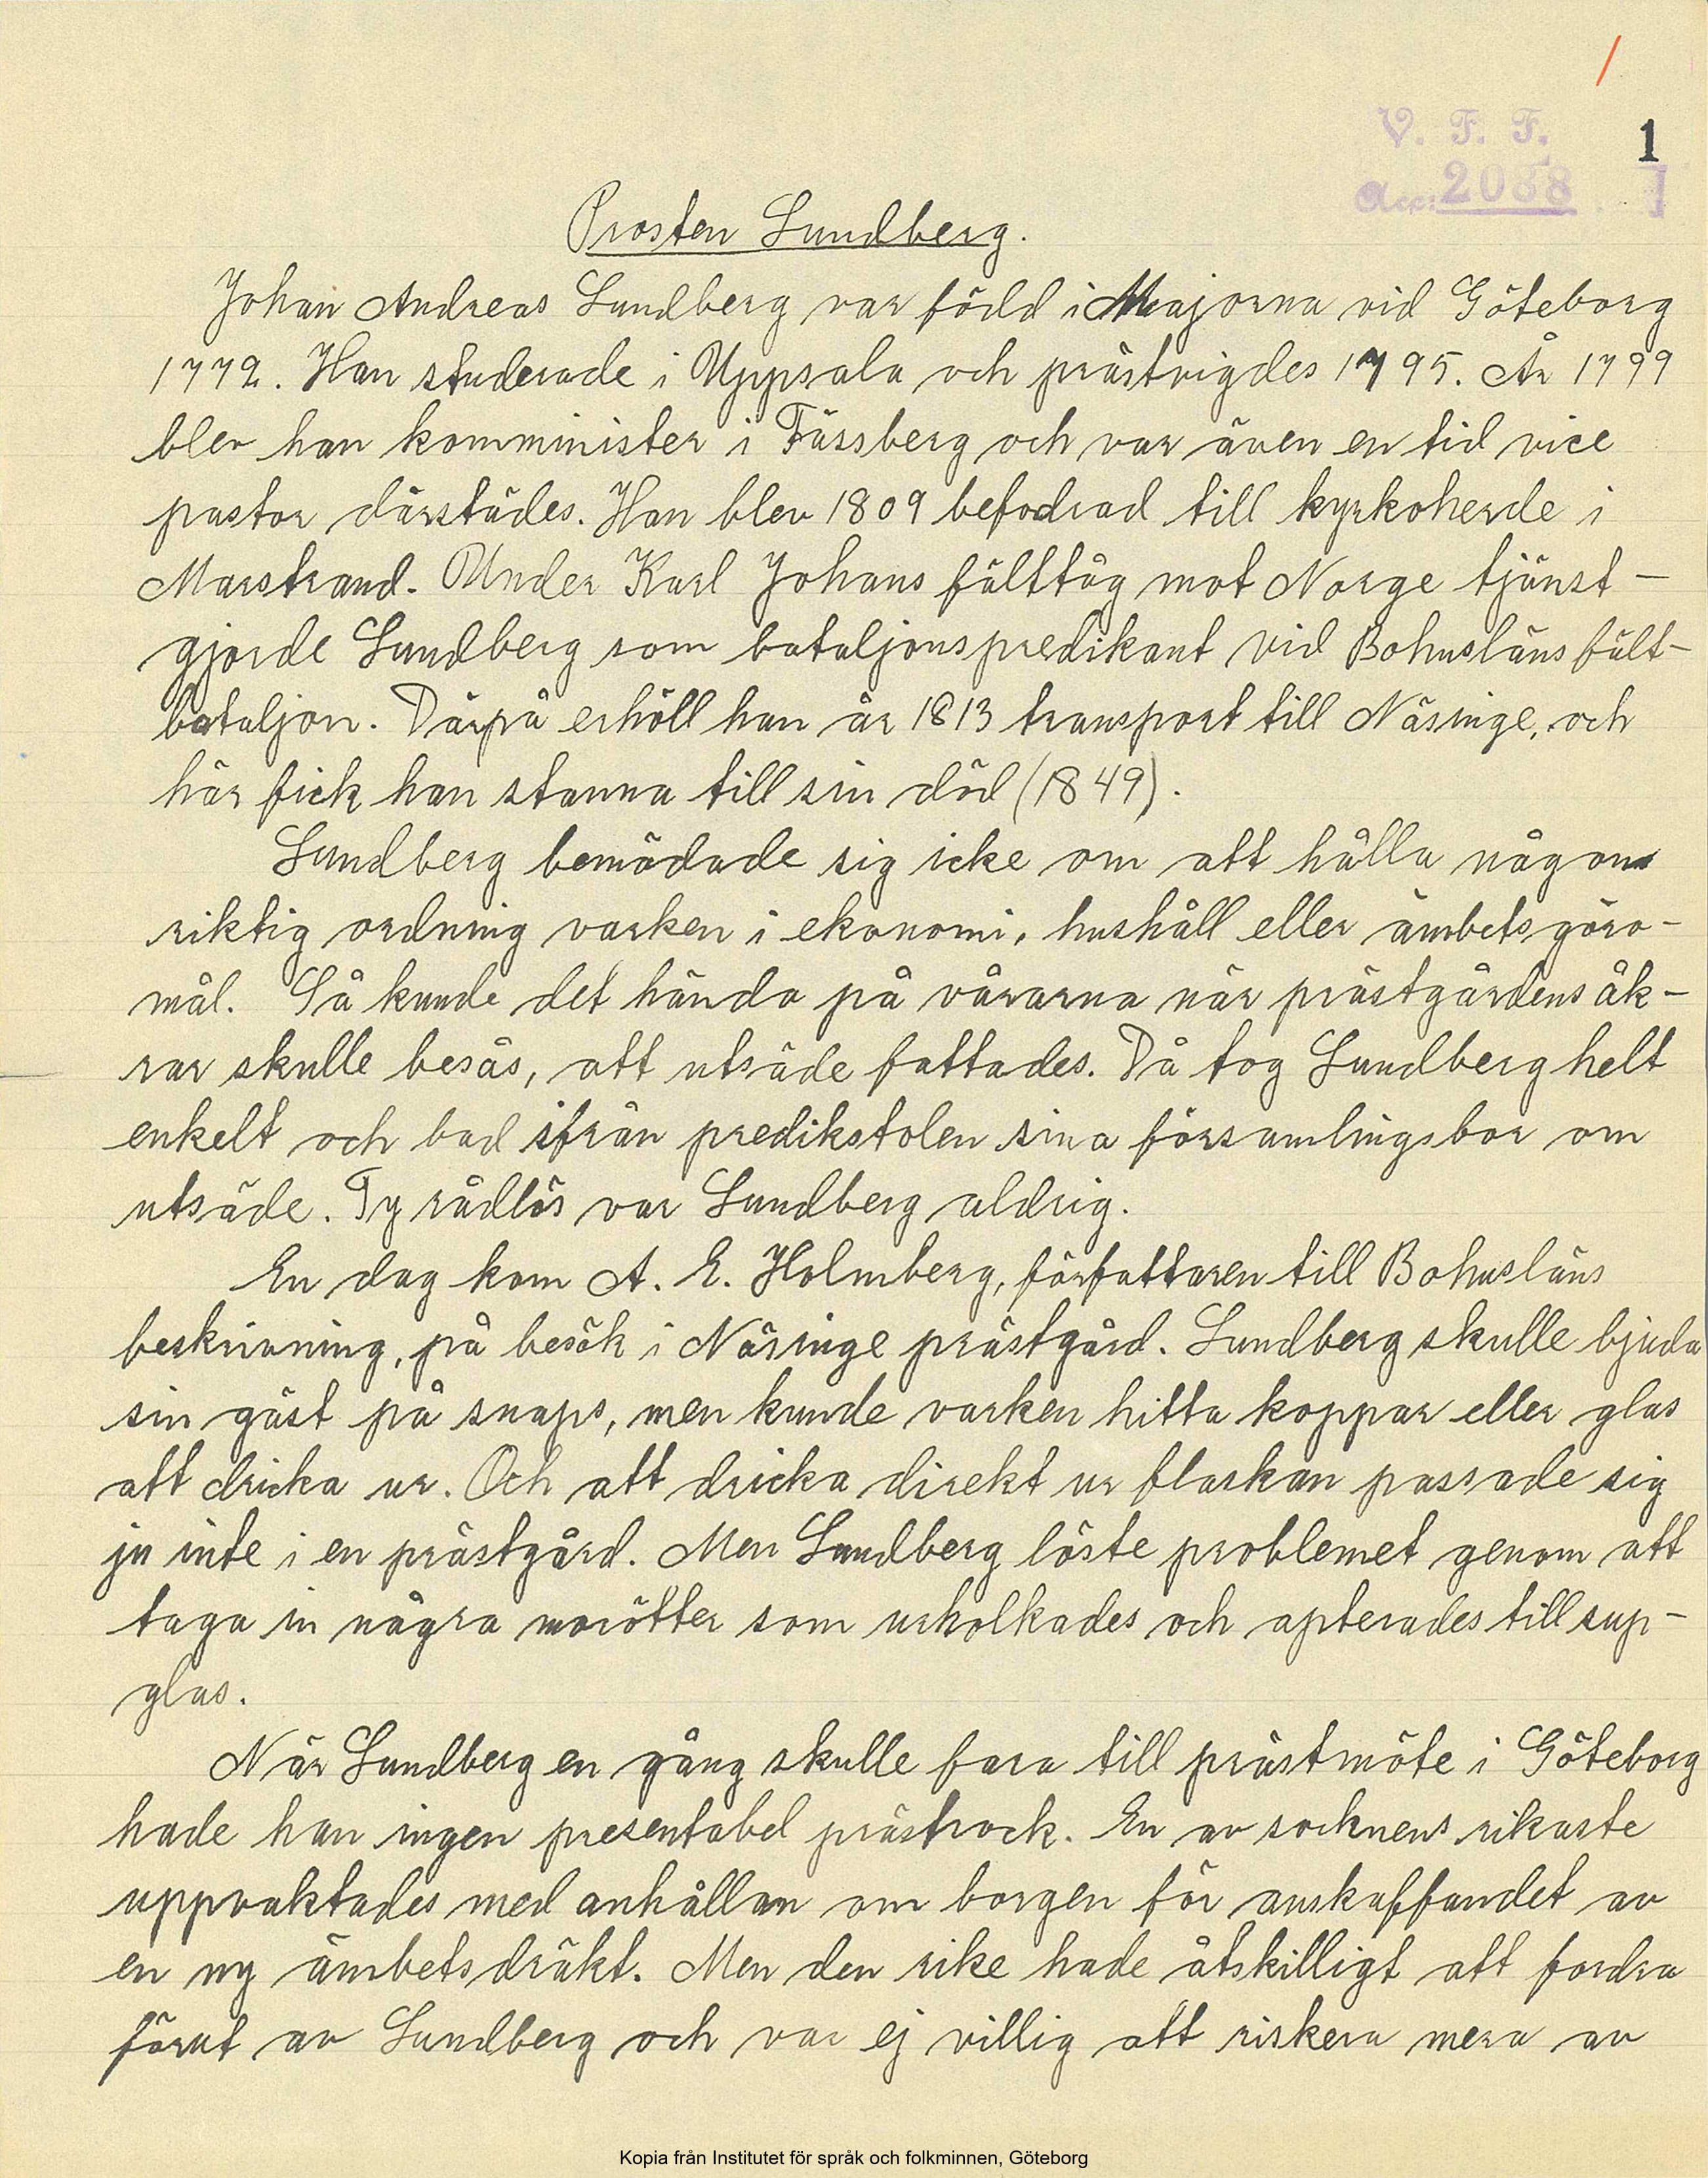 /
V. F. F.
1
Acc: 2038
Prosten Lundberg.
Johan Andreas Lundberg var född i Majorna vid Göteborg
1772. Han studerade i Uppsala och prästvigdes 1795. År 1799
blev han komminister i Fässberg och var även en tid vice
pastor därstädes. Han blev 1809 befodrad till kyrkoherde i
Marstrand. Under Karl Johans fälttåg mot Norge tjänst-
gjorde Lundberg som bataljonspredikant vid Bohusläns fält-
bataljon. Därpå erhöll han år 1813 transport till Näsinge, och
här fick han stanna till sin död (1849).
Lundberg bemödade sig icke om att hålla någon
riktig ordning varken i ekonomi, hushåll eller ämbetsgöro-
mål. Så kunde det hända på vårarna när prästgårdens åk-
rar skulle besås, att utsäde fattades. Då tog Lundberg helt
enkelt och bad ifrån predikstolen sina församlingsbor om
utsäde. Ty rådlös var Lundberg aldrig.
En dag kom A. E. Holmberg, författaren till Bohusläns
beskrivning, på besök i Näsinge prästgård. Lundberg skulle bjuda
sin gäst på snaps, men kunde varken hitta koppar eller glas
att dricka ur. Och att dricka direkt ur flaskan passade sig
ju inte i en prästgård. Men Lundberg löste problemet genom att
taga in några morötter som urholkades och apterades till sup-
glas.
När Lundberg en gång skulle fara till prästmöte i Göteborg
hade han ingen presentabel prästrock. En av socknens rikaste
uppvaktades med anhållan om borgen för anskaffandet av
en ny ämbetsdräkt. Men den rike hade åtskilligt att fordra
förut av Lundberg och var ej villig att riskera mera av
Kopia från Institutet för språk och folkminnen, Göteborg